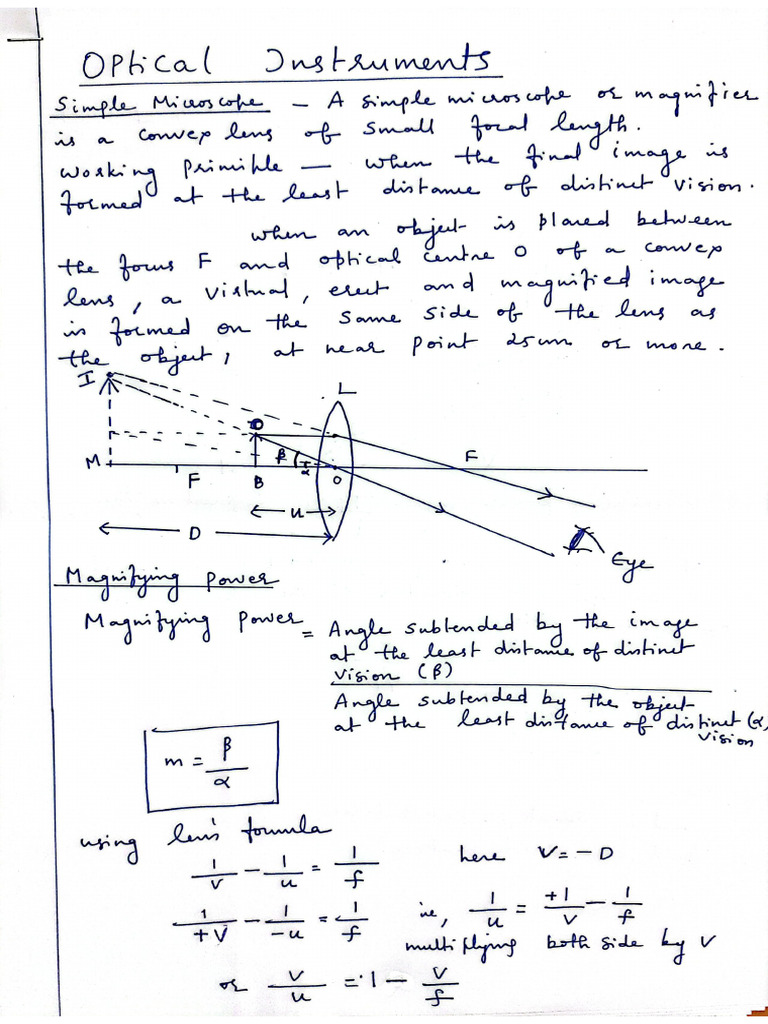 Optical Instruments
Simple Microscope — A simple microscope or magnifier
is a convex lens of small focal length.
working principle — when the final image is
formed at the least distance of distinct vision.
when an object is placed between
the focus F and optical centre O of a convex
lens, a virtual, erect and magnified image
is formed on the same side of the lens as
the object, at near point 25cm or more.
I
L
M F B β α O F
u
D
Eye
Magnifying power
Magnifying power = Angle subtended by the image
at the least distance of distinct
vision (β)
Angle subtended by the object
at the least distance of distinct (α)
vision
m = β/α
using len's formula
1/v - 1/u = 1/f here V = - D
1/+v - 1/-u = 1/f ie, 1/u = +1/v - 1/f
multiplying both side by v
or v/u = 1 - v/f